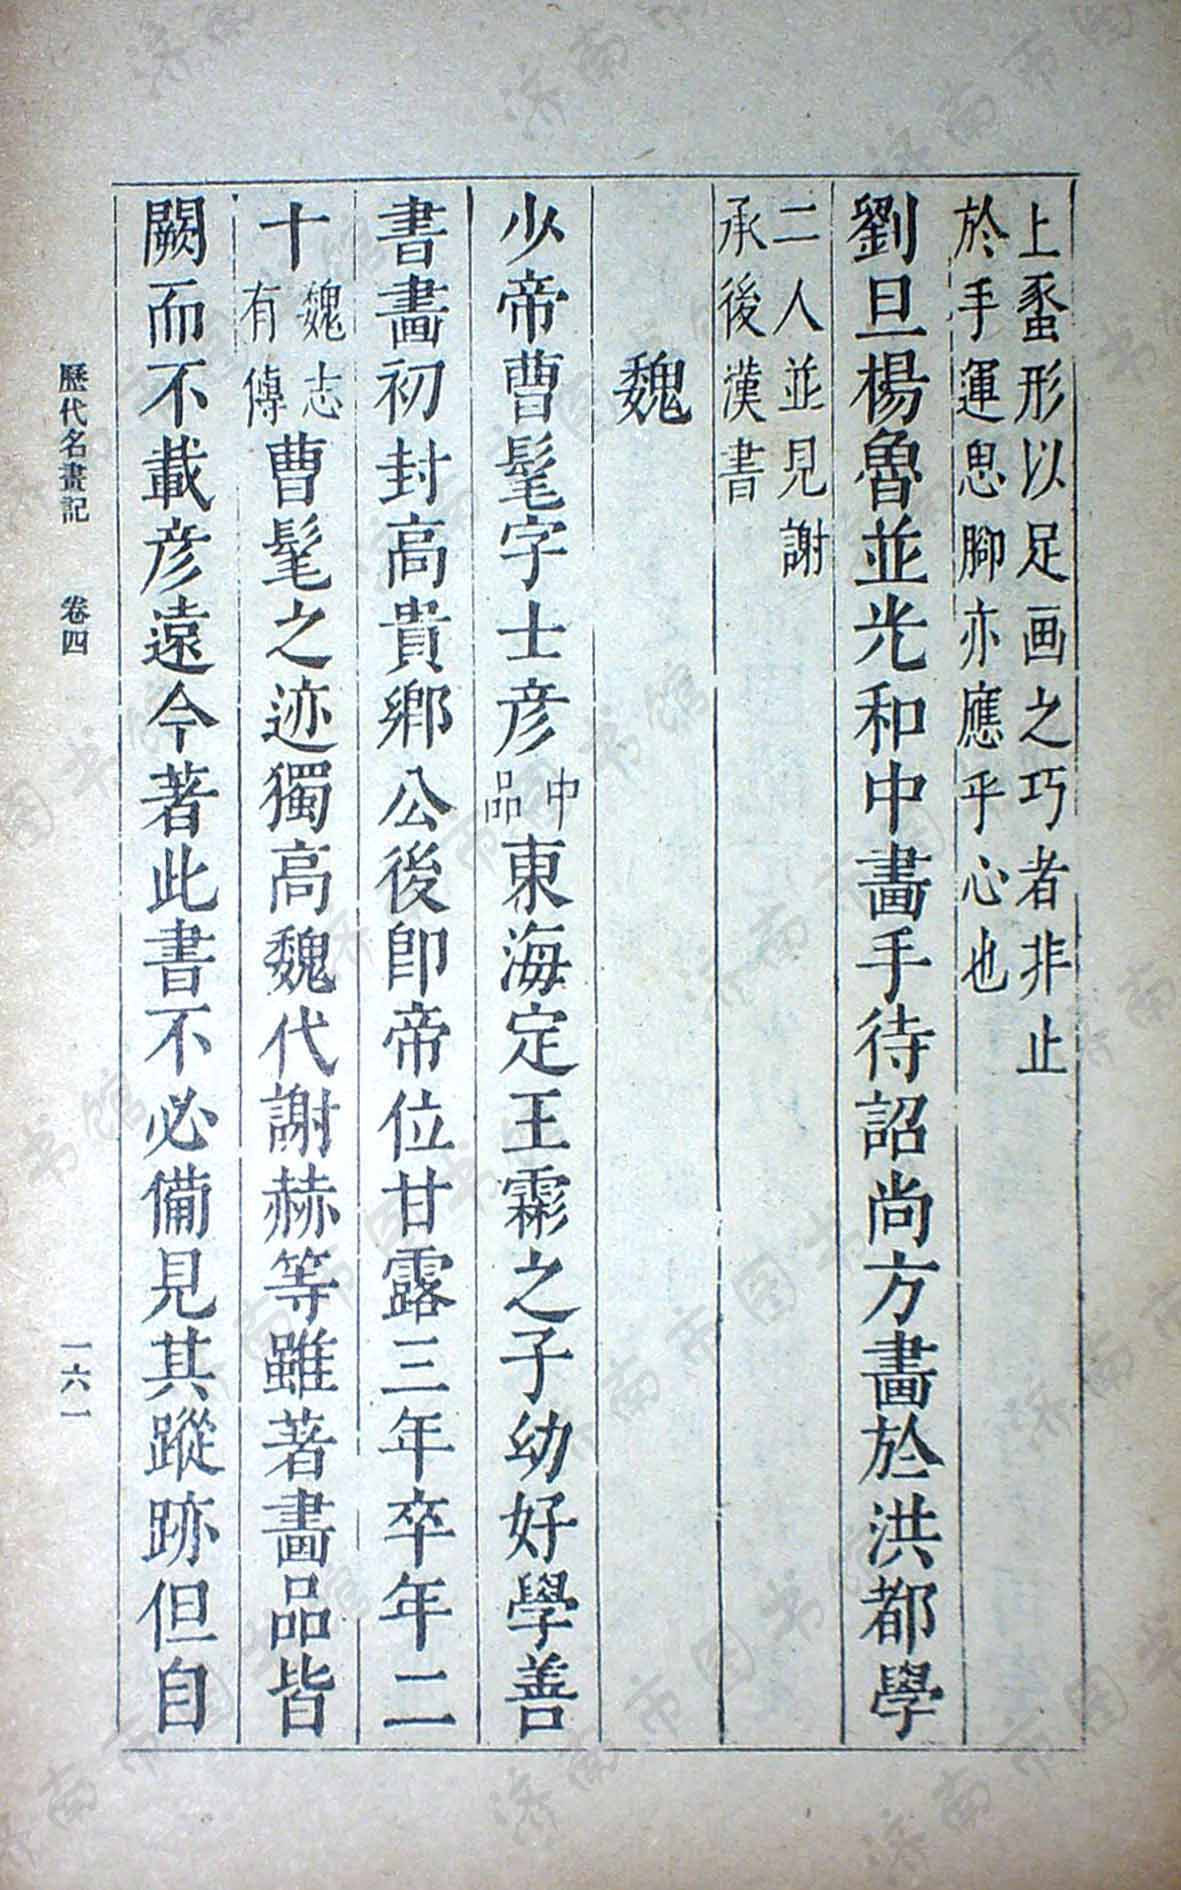 上蜚形以足画之巧者非止
於手運思腳亦應乎心也
劉旦楊魯並光和中畫手待詔尚方畫於洪都學
二人並見謝
承後漢書
魏
少帝曹髦字士彦中品東海定王霖之子幼好學善
書畫初封高貴鄉公後卽帝位甘露三年卒年二
十魏志有傳曹髦之迹獨高魏代謝赫等雖著畫品皆
闕而不載彦遠今著此書不必備見其蹤跡但自
歷代名畫記 卷四 一六一
济南市图书馆